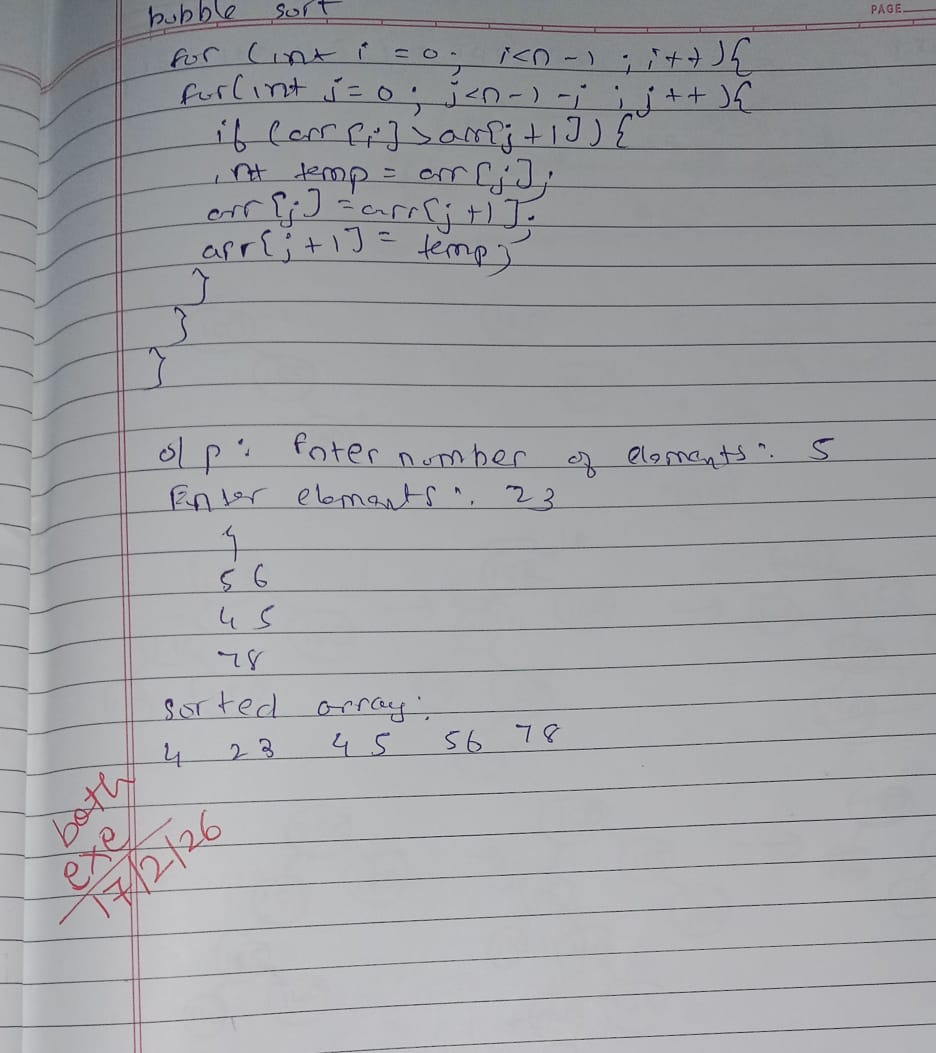 PAGE
bubble sort
for (int i = 0; i<n-1 ; i++){
for(int j=0; j<n-1-i ; j++){
if (arr[j]>arr[j+1]){
int temp = arr[j];
arr[j]=arr[j+1];
arr[j+1]= temp;
}
}
}
o/p: Enter number of elements: 5
Enter elements: 23
4
56
45
78
sorted array:
4 23 45 56 78
both
exe
17/2/26